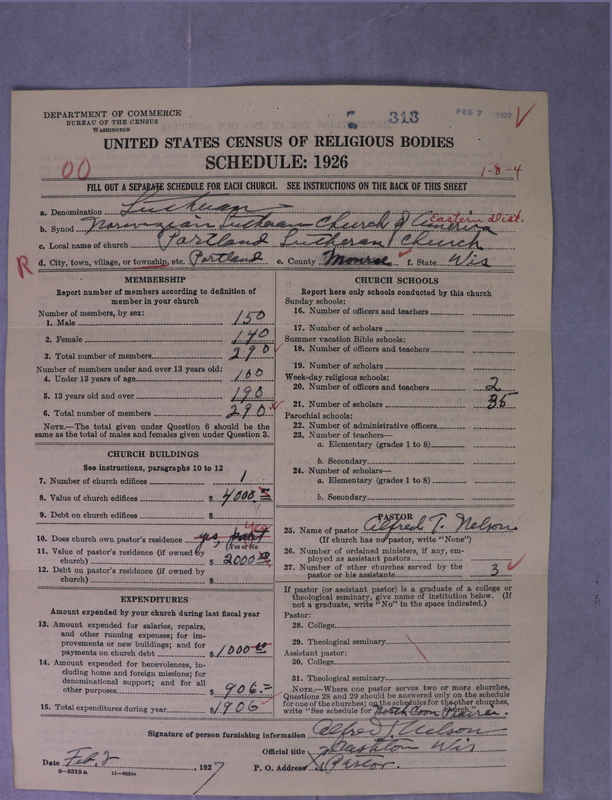 DEPARTMENT OF COMMERCE
BUREAU OF THE CENSUS
WASHINGTON
313
FEB 7
UNITED STATES CENSUS OF RELIGIOUS BODIES
SCHEDULE: 1926
00
1-8-4
FILL OUT A SEPARATE SCHEDULE FOR EACH CHURCH. SEE INSTRUCTIONS ON THE BACK OF THIS SHEET
a. Denomination Lutheran
b. Synod Norwegian Lutheran Church of America Eastern Dist.
c. Local name of church Portland Lutheran Church
R d. City, town, village, or township, etc. Portland e. County Monroe f. State Wis
MEMBERSHIP
Report number of members according to definition of
member in your church
Number of members, by sex:
1. Male 150
2. Female 140
3. Total number of members 290
Number of members under and over 13 years old:
4. Under 13 years of age 100
5. 13 years old and over 190
6. Total number of members 290
NOTE.—The total given under Question 6 should be the
same as the total of males and females given under Question 3.
CHURCH BUILDINGS
See instructions, paragraphs 10 to 12
7. Number of church edifices 1
8. Value of church edifices $ 4000
9. Debt on church edifices $
10. Does church own pastor's residence yes, part Yes
(Yes or No)
11. Value of pastor's residence (if owned by
church) $ 2000
12. Debt on pastor's residence (if owned by
church) $
EXPENDITURES
Amount expended by your church during last fiscal year
13. Amount expended for salaries, repairs,
and other running expenses; for im-
provements or new buildings; and for
payments on church debt $ 1000
14. Amount expended for benevolences, in-
cluding home and foreign missions; for
denominational support; and for all
other purposes $ 906.
15. Total expenditures during year $ 1906
CHURCH SCHOOLS
Report here only schools conducted by this church
Sunday schools:
16. Number of officers and teachers
17. Number of scholars
Summer vacation Bible schools:
18. Number of officers and teachers
19. Number of scholars
Week-day religious schools:
20. Number of officers and teachers 2
21. Number of scholars 35
Parochial schools:
22. Number of administrative officers
23. Number of teachers—
a. Elementary (grades 1 to 8)
b. Secondary
24. Number of scholars—
a. Elementary (grades 1 to 8)
b. Secondary
PASTOR
25. Name of pastor Alfred T. Nelson
(If church has no pastor, write "None")
26. Number of ordained ministers, if any, em-
ployed as assistant pastors
27. Number of other churches served by the
pastor or his assistants 3
If pastor (or assistant pastor) is a graduate of a college or
theological seminary, give name of institution below. (If
not a graduate, write "No" in the space indicated.)
Pastor:
28. College
29. Theological seminary
Assistant pastor:
30. College
31. Theological seminary
NOTE.—Where one pastor serves two or more churches,
Questions 28 and 29 should be answered only on the schedule
for one of the churches; on the schedules for the other churches,
write "See schedule for North Coon Prairie church."
Signature of person furnishing information Alfred T. Nelson
Official title Cashton Wis
Date Feb, 2, 1927 P. O. Address Pastor.
8-5518a